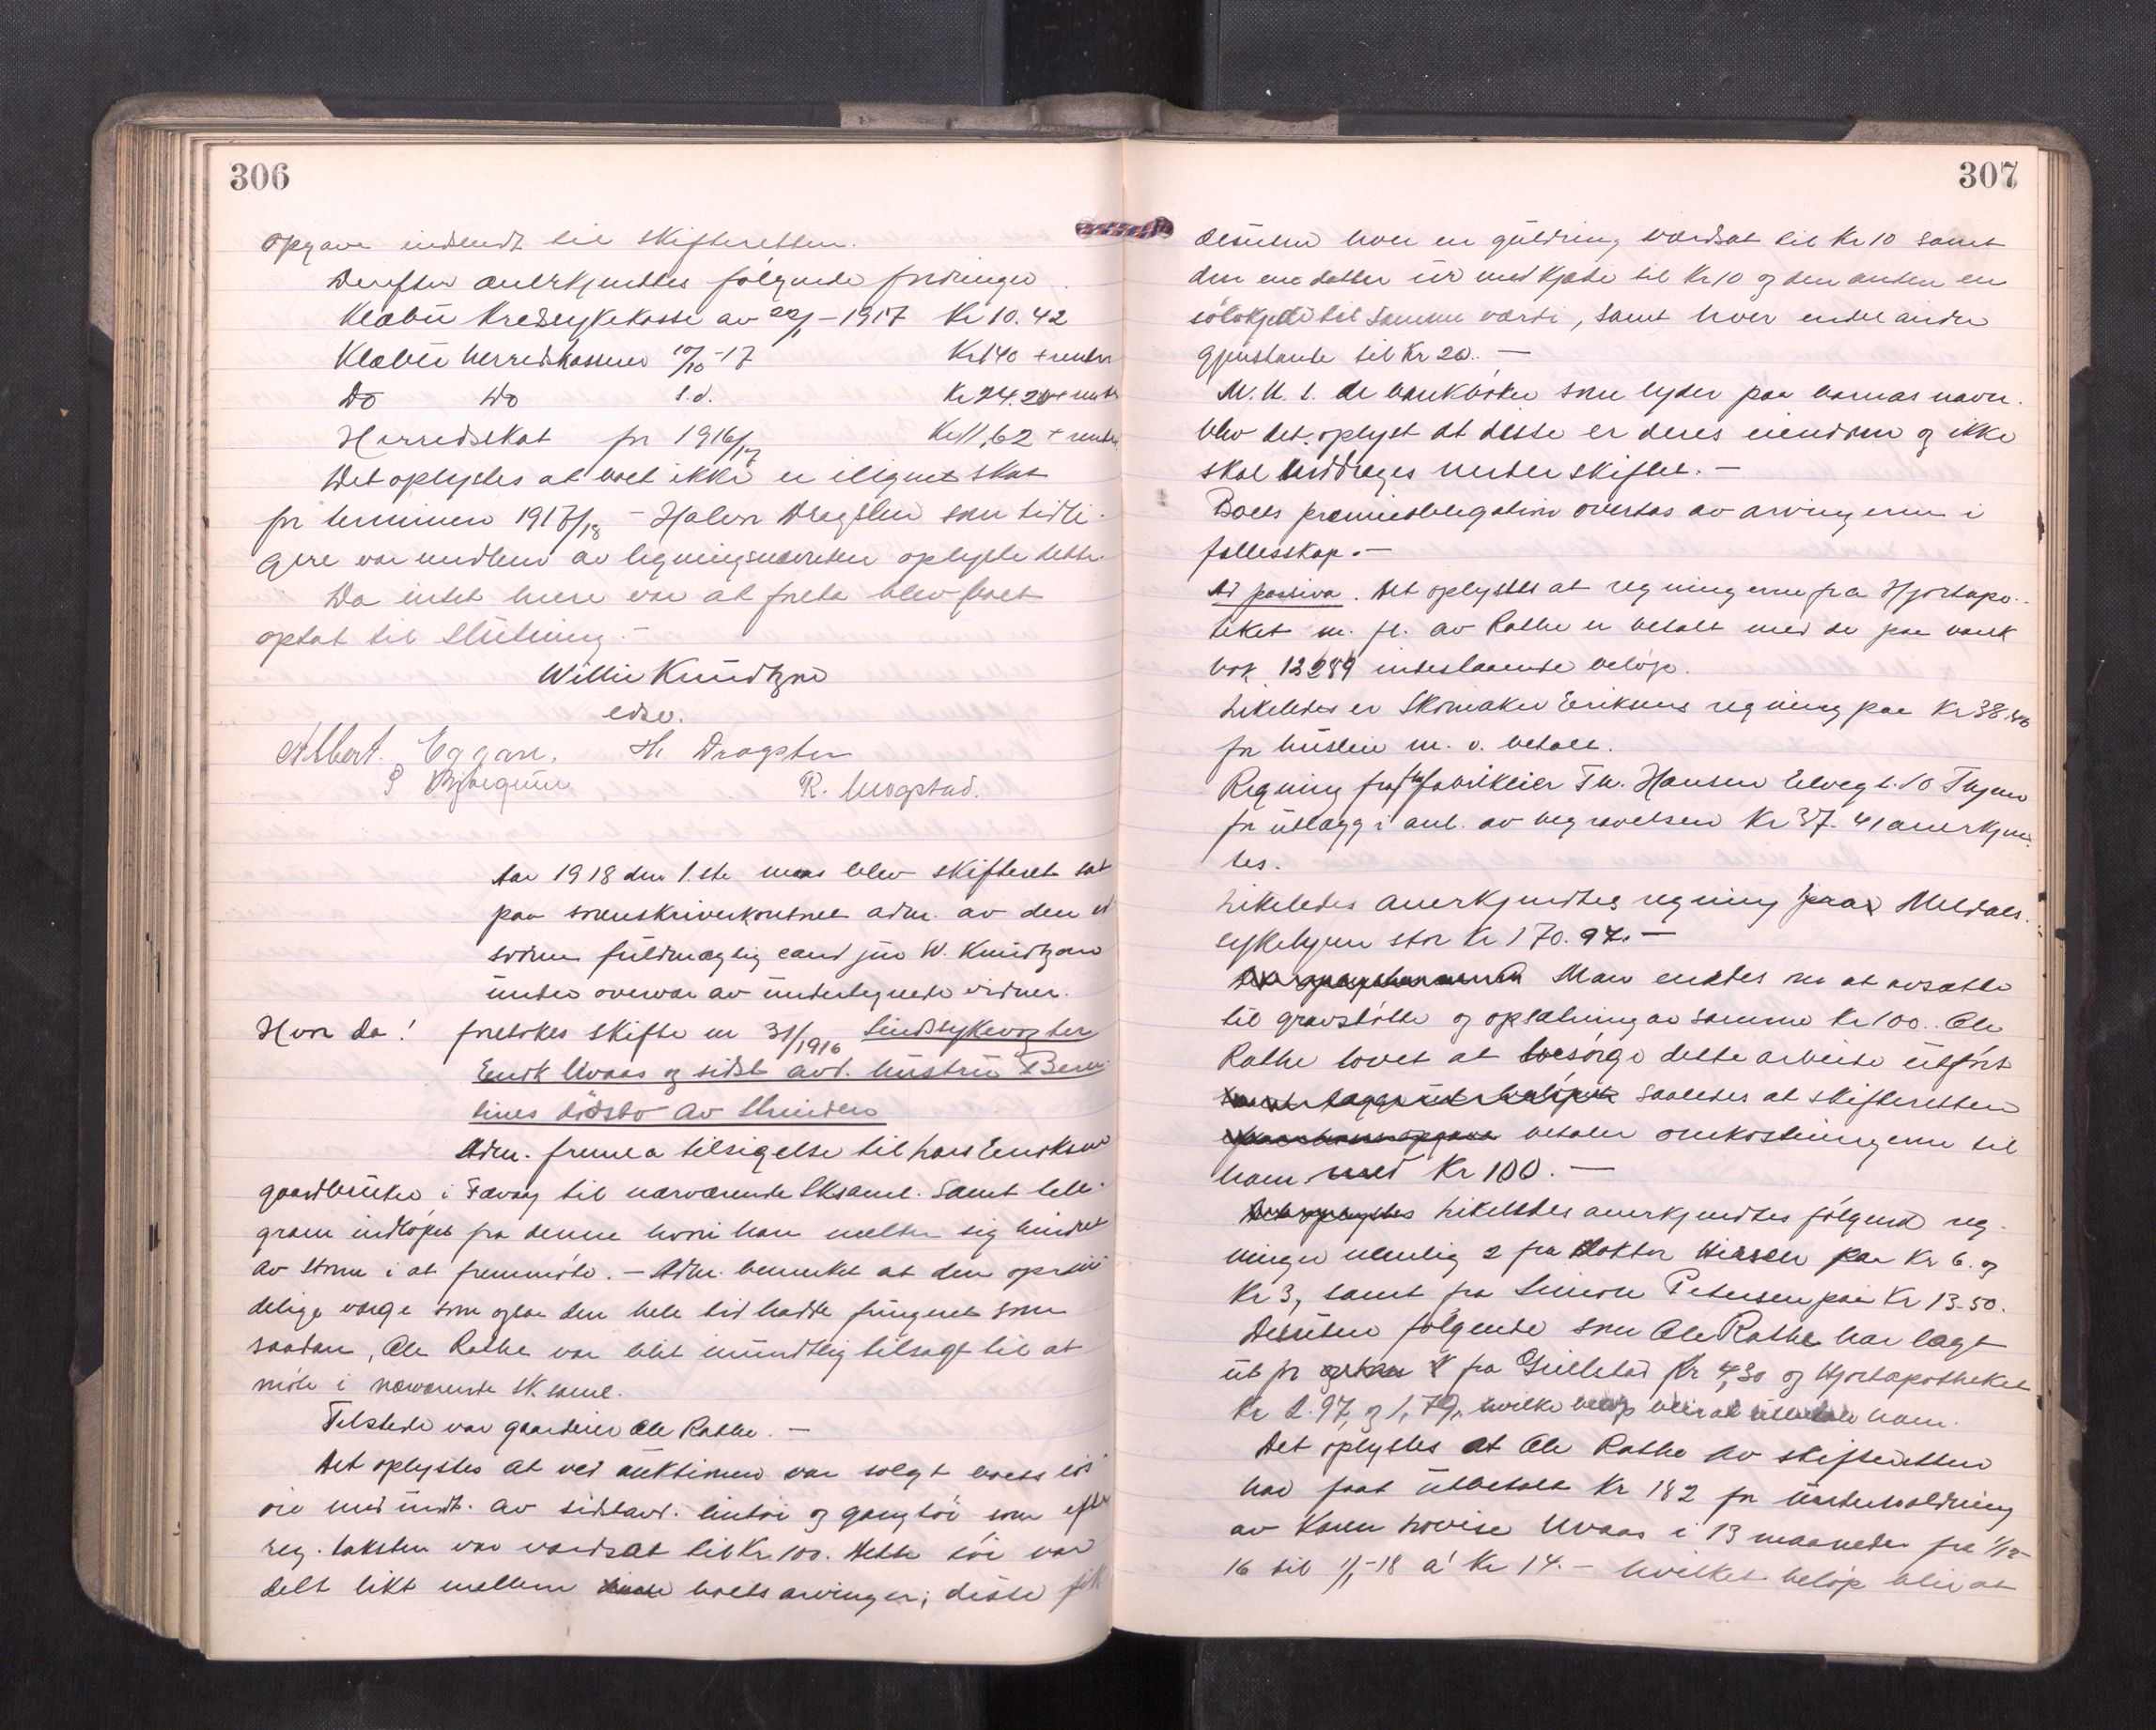 306
opgave indsendt til skifteretten.
Derefter anerkjendtes følgende fordringer
Klæbu Kredsykekasse av 22/1-1917 Kr 10.42
Klæbu herredskasserer 10/10-17 Kr 140 + renter
Do Do s.d. Kr 24.20 + renter
Herredskat for 1916/17 Kr 11,62 + renter
Det oplystes at boet ikke er ilignet skat
for terminen 1917/18 - Halvor Dragsten som tidli-
gere var medlem av ligningsnævnden oplyste dette.
Da intet mere var at foreta blev boet
optat til slutning.-
Willie Knudtzon
edsv.
Albert Eggan. H. Dragsten
P Bjørgum R. Mogstad.
Aar 1918 den 1.ste mars blev skifteret sat
paa sorenskriverkontoret adm. av den ed
sorne fuldmægtig cand jur W. Knudtzon
under overvær av undertegnede vidner.
Hvor da! foretokes skifte nr 31/1916 sindssykevogter
Enok Moaas og sidst avd. hustru Bern
tines dødsbo av Strinden
Adm. fremla tilsigelse til Lars Enoksen
gaardbruker i  til nærværende Sksaml. samt tele-
gram indløpet fra denne hvori han melder sig hindret
av storm i at fremmøte. - Adm. bemerket at den oprin
delige værge som ogsaa den hele tid hadde fungeret som
saadan, Ole Rathe var blit mundtlig tilsagt til at
møte i nærværende sk.saml.
Tilstede var gaardeier Ole Rathe. -
Det oplystes at ved auktionen var solgt boets løs
øre med undt. av sidstavd. lintøi og gangtøi som efter
reg. taksten var værdsat til Kr. 100. Dette tøi var
delt likt mellem boets arvinger; disse fik
307
desuten hver en guldring værdsat til Kr 10 samt
den ene datter ur med kjæde til Kr 10 og den anden en
sølvkjæde til samme værdi, samt hver endel andre
gjenstande til Kr 20. -
M.H.t. de bankbøker som lyder paa barnas navn.
blev det oplyst at disse er deres eiendom og ikke
skal inddrages under skiftet. -
Boets premieobligation overtas av arvingerne i
fællesskap. -
Ad passiva. Det oplystes at regningerne fra Hjortapo-
teket m. fl. av Rathe er betalt med de paa bank
bok 12289 indestaaende beløp.
Likeledes er Skomaker Eriksens regning paa Kr 38,40
for husleie m.v. betalt.
Regning fra fabrikeier Th. Hansen Elvegt. 10 Thjem
for utlægg i anl. av begravelsen Kr 37.41 anerkjen
tes.
Likeledes anerkjendtes regning fra Meldals
sykehjem stor Kr 170.97. -
Man enedes om at avsætte
til gravstøtte og opsætning av samme Kr 100. Ole
Rathe lovet at besørge dette arbeide utført
saaledes at skifteretten
betaler omkostningerne til
ham med Kr 100. -
Det oplystes Likeledes anerkjendtes følgende reg-
ninger nemlig 2 fra Doktor  paa Kr 6. og
Kr 3, samt fra Simon Petersen paa Kr 13.50.
Desuten følgende som Ole Rathe har lagt
ut for fra Gullstad Kr 4,30 og Hjortapotheket
Kr 2.97, og 1,79, hvilke beløp blir at utbetale ham.
Det oplystes at Ole Rathe av skifteretten
har faat utbetalt Kr 182 for underholdning
av Karen Lovise Moaas i 13 maaneder fra 1/12-
16 til 1/1-18 a' Kr 14. - hvilket beløp blir at